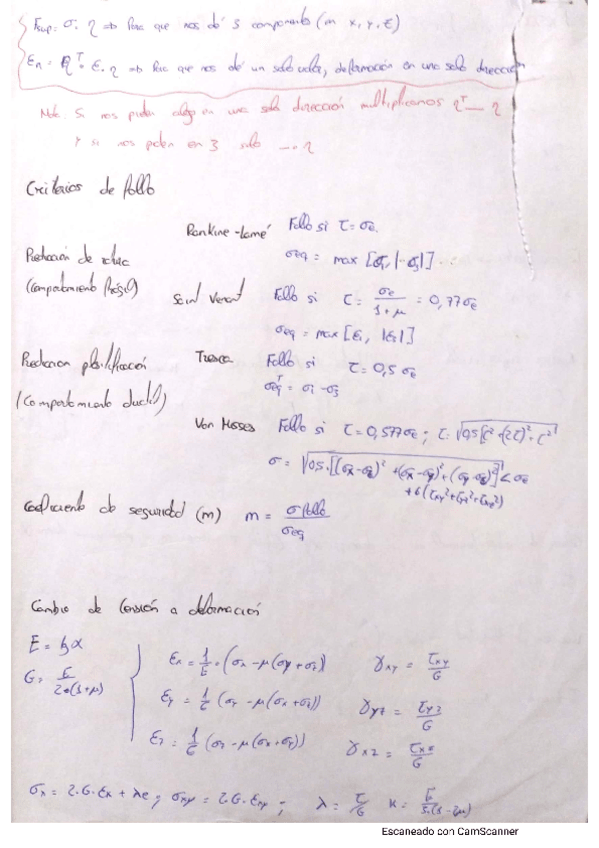 Fsup = σ. η => Para que nos dé 3 componentes (en x, y, z)
εn = ηᵀ. ε. η => Para que nos dé un solo valor, deformación en una sola dirección
Nota. Si nos piden algo en una sola dirección multiplicamos ηᵀ__ η
Y si nos piden en 3 solo __. η
Criterios de fallo
Rankine-Lamé Fallo si τ = σe
Predicción de
(Comportamiento frágil)
σeq = max [σ1, |-σ3|]
Saint Venant Fallo si τ = σe / 1+μ = 0,77σe
σeq = max [ε1, |ε3|]
Predicción plastificación
(Comportamiento ductil)
Tresca Fallo si τ = 0,5 σe
σeqᵀ = σ1 - σ3
Von Misses Fallo si τ = 0,577σe ;
σ = √0,5.[(σx-σz)² + (σx-σy)² + (σy-σz)²] < σe
+6(τxy²+τyz²+τxz²)
Coeficiente de seguridad (m) m = σfallo / σeq
Cambio de tensión a deformación
G = E / 2.(1+μ)
εx = 1/E . (σx - μ(σy+σz)) γxy = τxy / G
εy = 1/E (σy - μ(σx+σz)) γyz = τyz / G
εz = 1/E (σz - μ(σx+σy)) γxz = τxz / G
σx = 2.G.εx + λe ; σxy = 2.G.εxy ; λ = K = E / 3.(1-2μ)
Escaneado con CamScanner